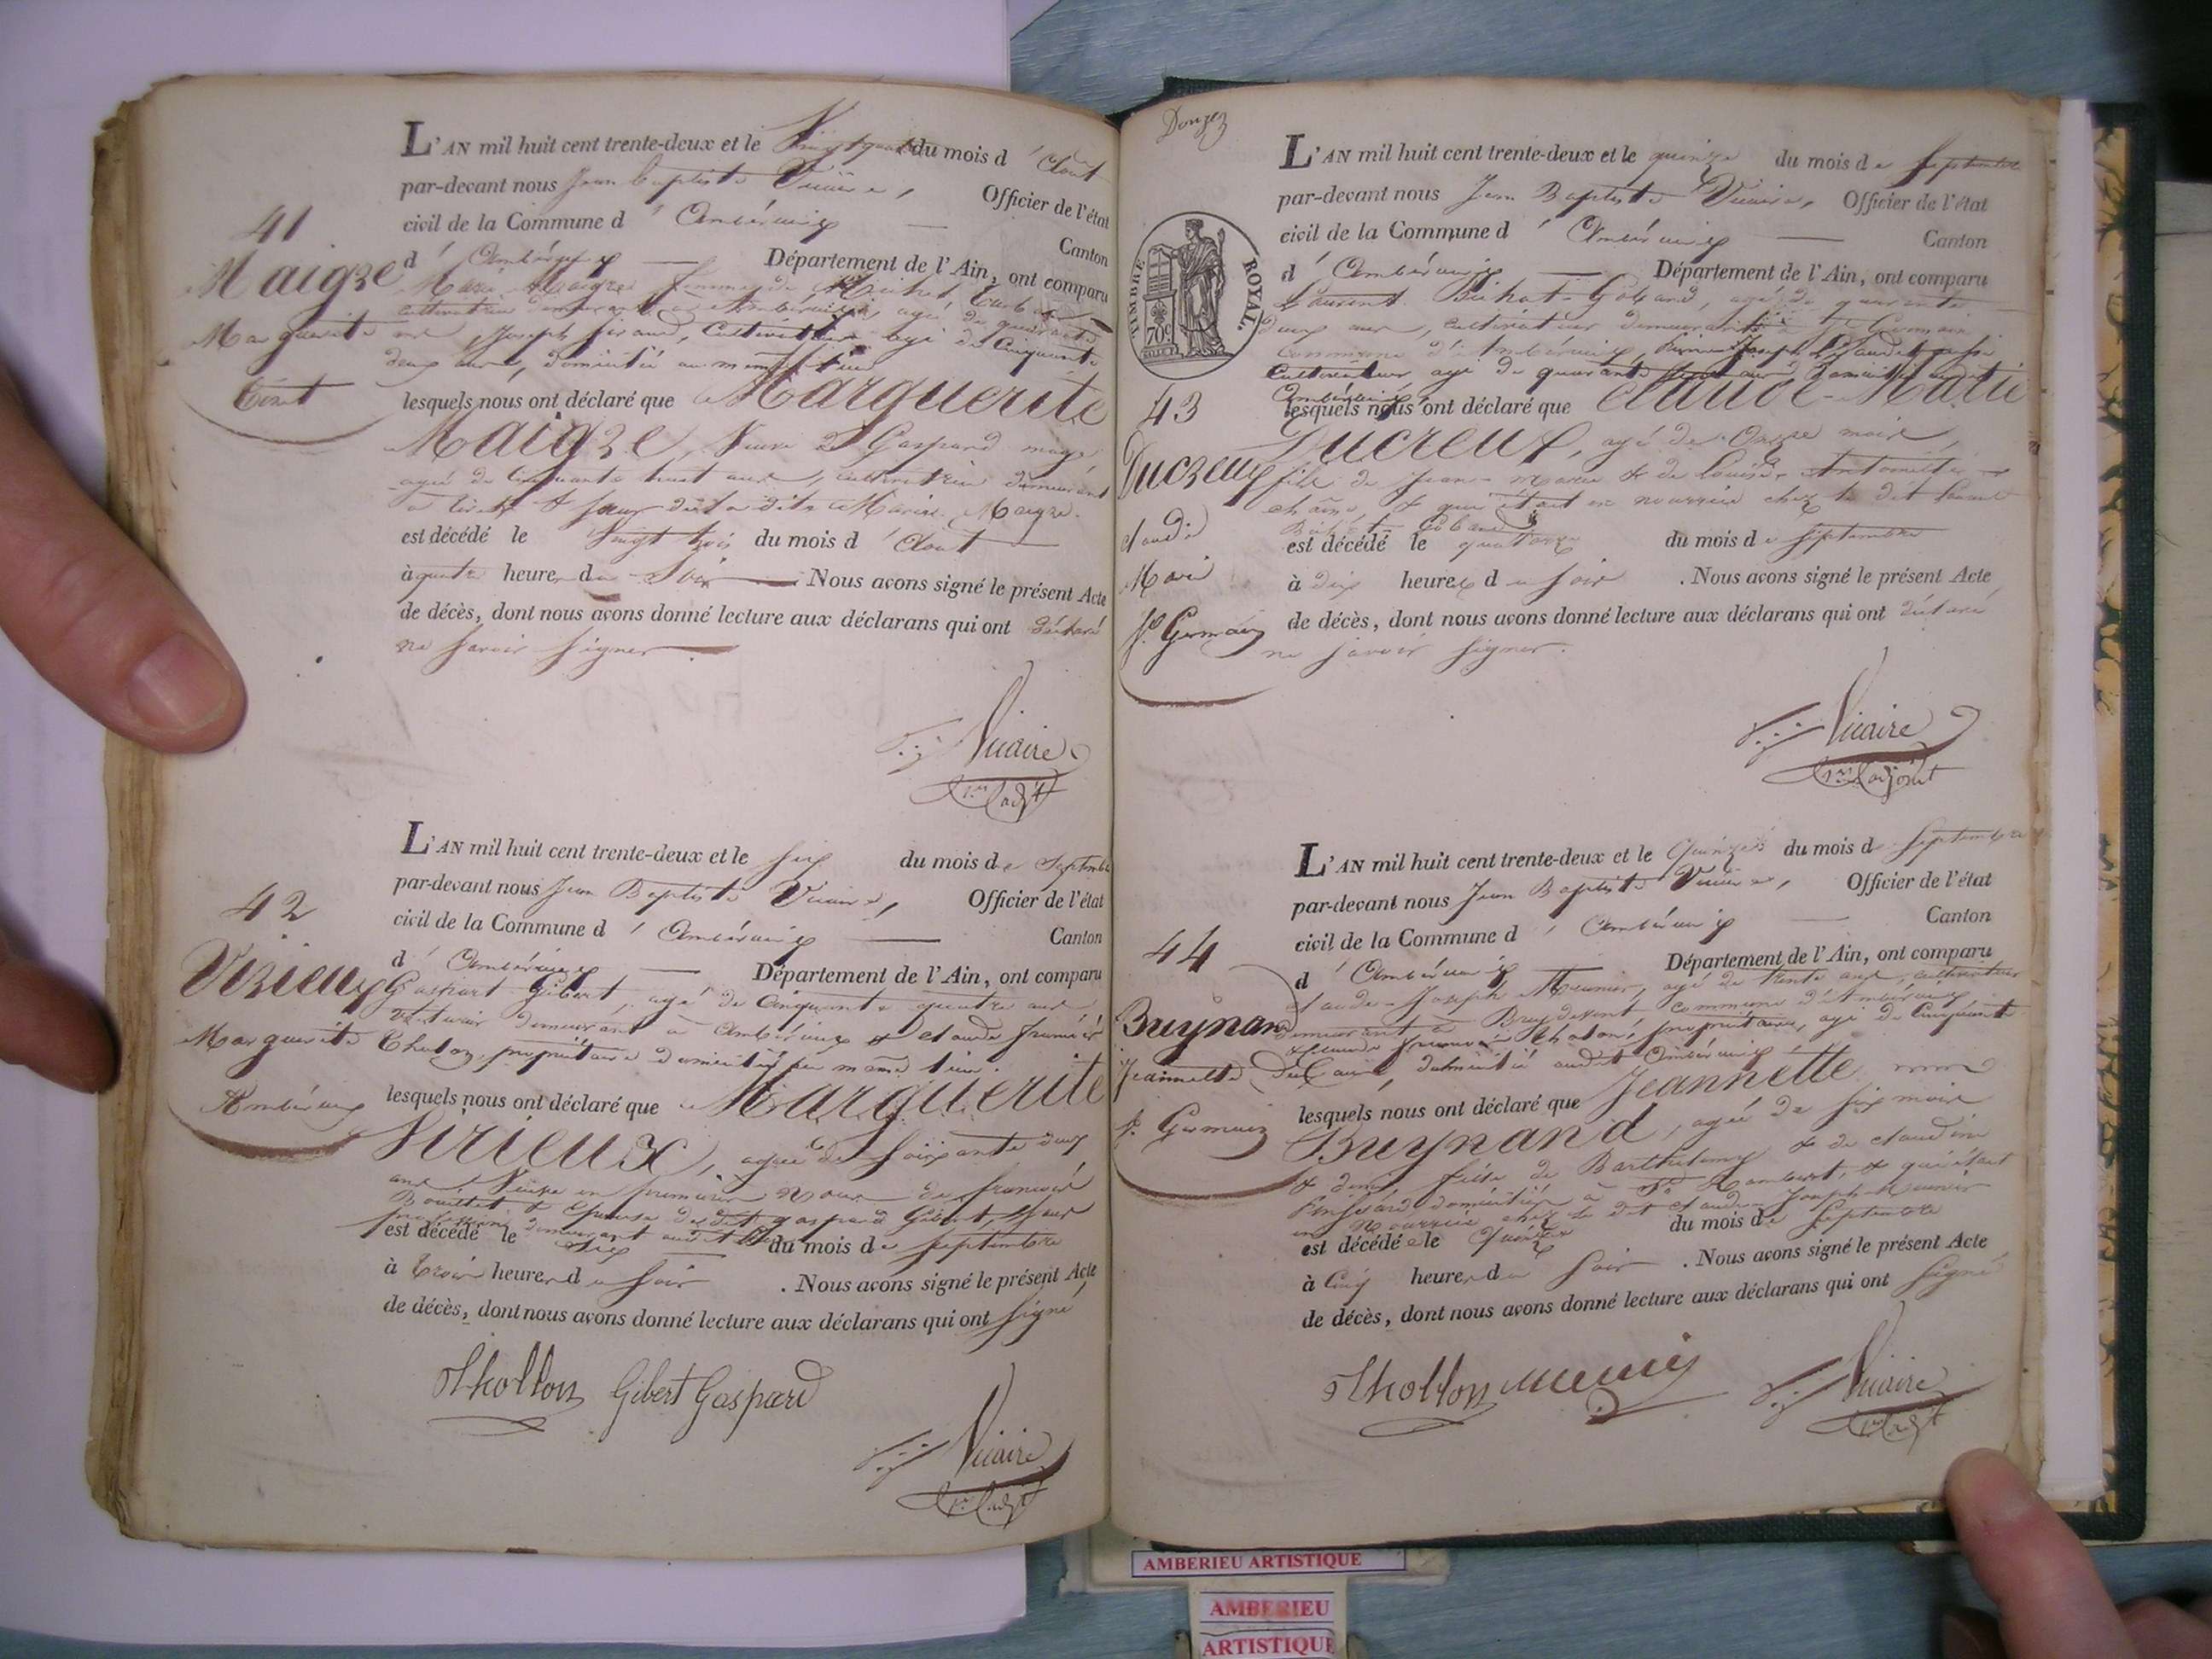 41
Maigre
Marguerite
Tiret
L'AN mil huit cent trente-deux et le Vingt quatre du mois d'Aout
par-devant nous Jean Baptiste Vicaire, Officier de l'état
civil de la Commune d'Ambérieux Canton
d'Ambérieux Département de l'Ain, ont comparu
Marie Maigre femme de Michel
cultivatrice demeurant à Ambérieux, agée de quarante
ans, Joseph Giraud, Cultivateur agé de Cinquante
deux ans, domicilié au même lieu
lesquels nous ont déclaré que Marguerite
Maigre, Veuve de Gaspard
agée de Cinquante huit ans, cultivatrice demeurant
à Tiret & sœur de la dite Marie Maigre.
est décédé le Vingt trois du mois d'Aout
à quatre heures du Soir. Nous avons signé le présent Acte
de décès, dont nous avons donné lecture aux déclarans qui ont déclaré
ne savoir signer
Vicaire
1er adjt
42
Virieux
Marguerite
Ambérieux
L'AN mil huit cent trente-deux et le six du mois de Septembre
par-devant nous Jean Baptiste Vicaire, Officier de l'état
civil de la Commune d'Ambérieux Canton
d'Ambérieux Département de l'Ain, ont comparu
Gaspart Gibert, agé de Cinquante quatre ans
demeurant à Ambérieux & Claude François
Tholon, propriétaire domicilié au même lieu.
lesquels nous ont déclaré que Marguerite
Virieux, agée de soixante deux
ans, Veuve en premières Noces de François
Bouillet & Epouse dudit gaspard Gibert, sans
profession demeurant audit lieu
est décédé le six du mois de Septembre
à trois heures du soir. Nous avons signé le présent Acte
de décès, dont nous avons donné lecture aux déclarans qui ont signé
Thollon Gibert Gaspard
Vicaire
1er adjt
Donzez
TIMBRE ROYAL.
70c
43
Ducreux
Claude
Marie
St Germain
L'AN mil huit cent trente-deux et le quinze du mois de Septembre
par-devant nous Jean Baptiste Vicaire, Officier de l'état
civil de la Commune d'Ambérieux Canton
d'Ambérieux Département de l'Ain, ont comparu
Laurent Bichat-Goband, agé de quarante
deux ans, cultivateur demeurant à St Germain
Commune d'Ambérieux, Joseph
Cultivateur agé de quarante ans domicilié audit
Ambérieux
lesquels nous ont déclaré que Claude-Marie
Ducreux, agé de Onze mois,
fils de Jean-Marie & de Louise Antoinette
& qui était en nourrice chez le dit Laurent
Bichat-Goband
est décédé le quatorze du mois de Septembre
à dix heures du soir. Nous avons signé le présent Acte
de décès, dont nous avons donné lecture aux déclarans qui ont déclaré
ne savoir signer.
Vicaire
1er adjoint
44
Buynand
Jeannette
St Germain
L'AN mil huit cent trente-deux et le Quinze du mois de Septembre
par-devant nous Jean Baptiste Vicaire, Officier de l'état
civil de la Commune d'Ambérieux Canton
d'Ambérieux Département de l'Ain, ont comparu
Claude-Joseph Meunier, agé de trente ans, cultivateur
demeurant à Breydevent Commune d'Ambérieux
& Claude François Tholon, propriétaire, agé de Cinquante
ans, domicilié audit Ambérieux
lesquels nous ont déclaré que Jeannette
Buynand, agée de six mois
& demi, fille de Barthelemy & de Claudine
domiciliés à St Rambert, & qui était
en Nourrice chez le dit Claude Joseph Meunier
est décédée le Quinze du mois de Septembre
à Cinq heures du soir. Nous avons signé le présent Acte
de décès, dont nous avons donné lecture aux déclarans qui ont signé
Thollon Meunier
Vicaire
1er adjt
AMBERIEU ARTISTIQUE
AMBERIEU
ARTISTIQUE